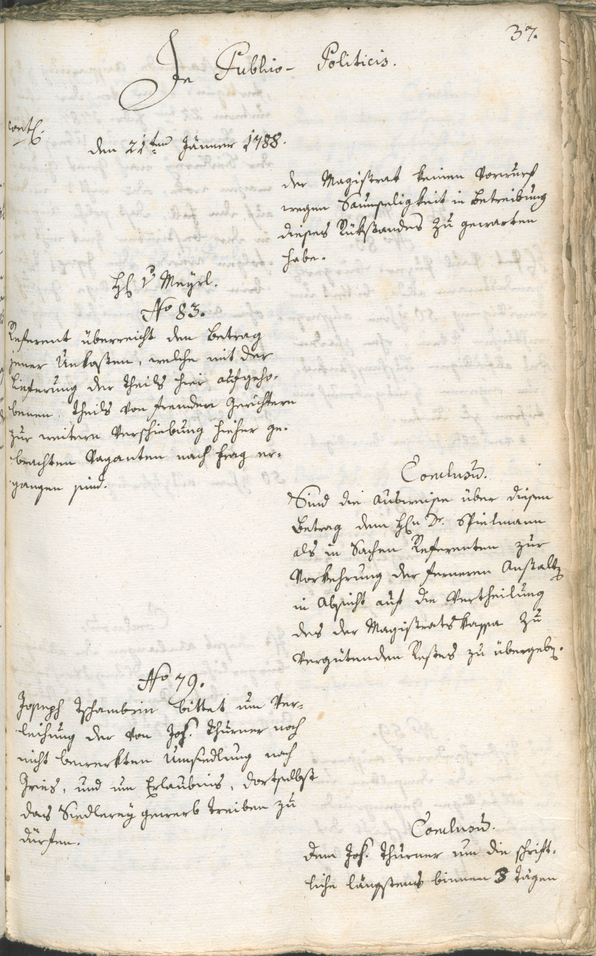 37.
In Publico-Politicis.
cont.
den 21ten Jänner 1788.
der Magistrat keinen Vorwurf
wegen Saumseligkeit in Betreibung
dieses Rükstandes zu gewarten
habe.
H. v Meyrl.
No 83.
Referent überreicht den Betrag
jener Unkosten, welche mit der
Lieferung der theils hier aufgeho-
benen theils von fremden Gerichtern
zur weitern Verschiebung hieher ge-
brachten Vaganten nach Prag er-
gangen sind.
Conclusum.
Sind die Ausweise über diesen
Betrag dem Hn Dr. Spielmann
als in Sachen Referenten zur
Vorkehrung der ferneren Anstalt
in Absicht auf die Vertheilung
des der Magistratskassa zu
vergütenden Restes zu übergeben.
No 79.
Joseph Tschambrin bittet um Ver-
leihung der von Jos. Thurner noch
nicht bewerkten Umsiedlung nach
Gries, und um Erlaubnis, dortselbst
das Siedlerey gewerb treiben zu
dürfen.
Conclusum.
Dem Jos. Thurner um die schrift-
liche längstens binnen 3 Tägen